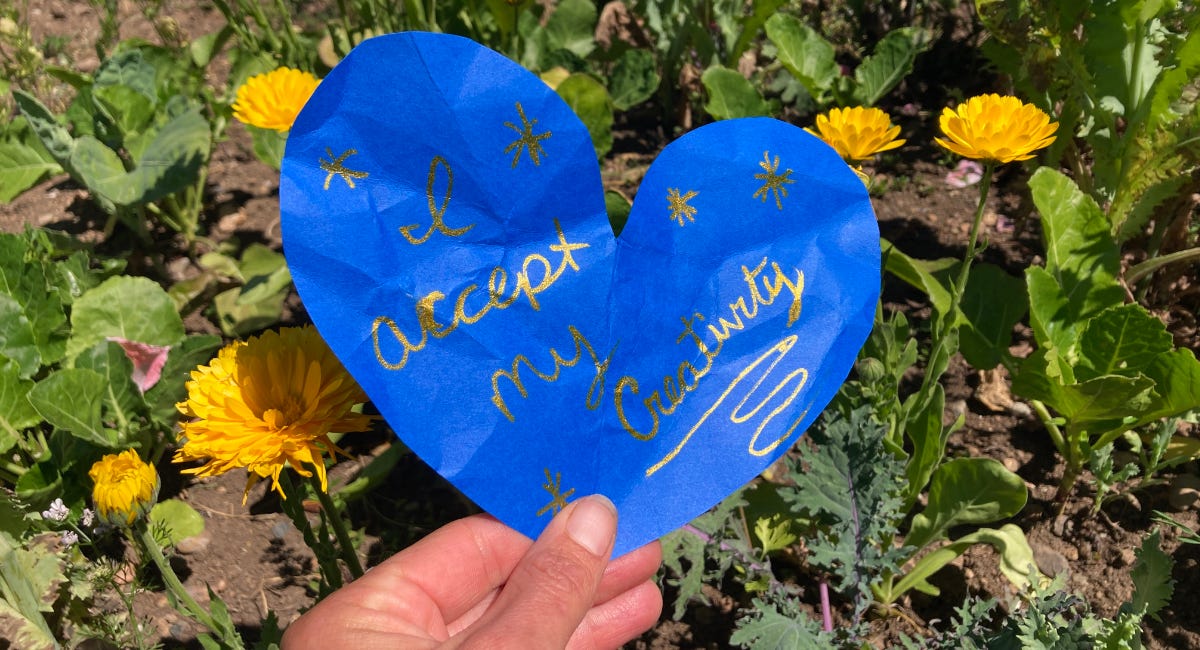 I
accept
my
Creativity